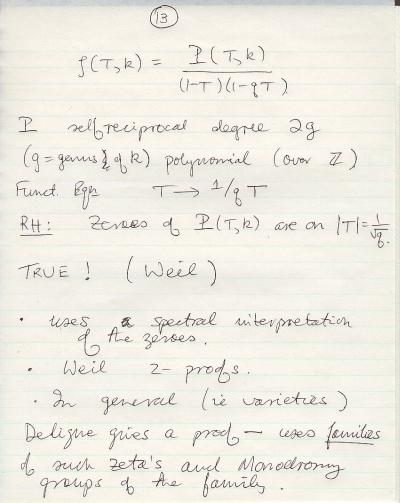 13
ζ(T, k) = P(T, k) / (1-T)(1-qT)
P selfreciprocal degree 2g
(g = genus of k) polynomial (over ℤ)
Funct. Eqn T → 1/qT
RH: Zeroes of P(T, k) are on |T| = 1/√q.
TRUE! (Weil)
• uses spectral interpretation
of the zeroes.
• Weil 2- proofs.
• In general (ie varieties)
Deligne gives a proof — uses families
of such zeta's and Monodromy
groups of the family.